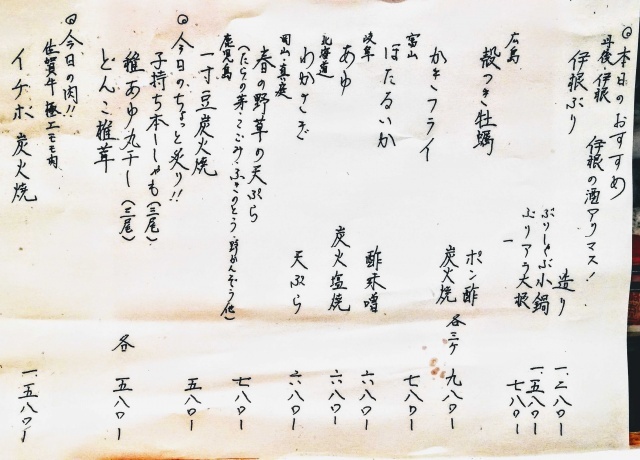 ◎本日のおすすめ
丹後・伊根 伊根の酒アリマス!
伊根ぶり 造り 一.二八〇ー
ぶりしゃぶ小鍋 一.五八〇ー
ぶりアラ大根 七八〇ー
広島
殻つき牡蠣 ポン酢
炭火焼 各二ケ 九八〇ー
かきフライ 七八〇ー
富山
ほたるいか 酢味噌 六八〇ー
岐阜
あゆ 炭火塩焼 六八〇ー
北海道
わかさぎ 天ぷら 六八〇ー
岡山・真庭
春の野草の天ぷら 七八〇ー
(たらの芽・こごみ・ふきのとう・野かんぞう他)
鹿児島
一寸豆炭火焼 五八〇ー
◎今日のちょっと炙り!!
子持ち本ししゃも(三尾)
稚あゆ丸干し(三尾) 各 五八〇ー
どんこ椎茸
◎今日の肉!!
佐賀牛 極上モモ肉
イチボ炭火焼 一.五八〇ー